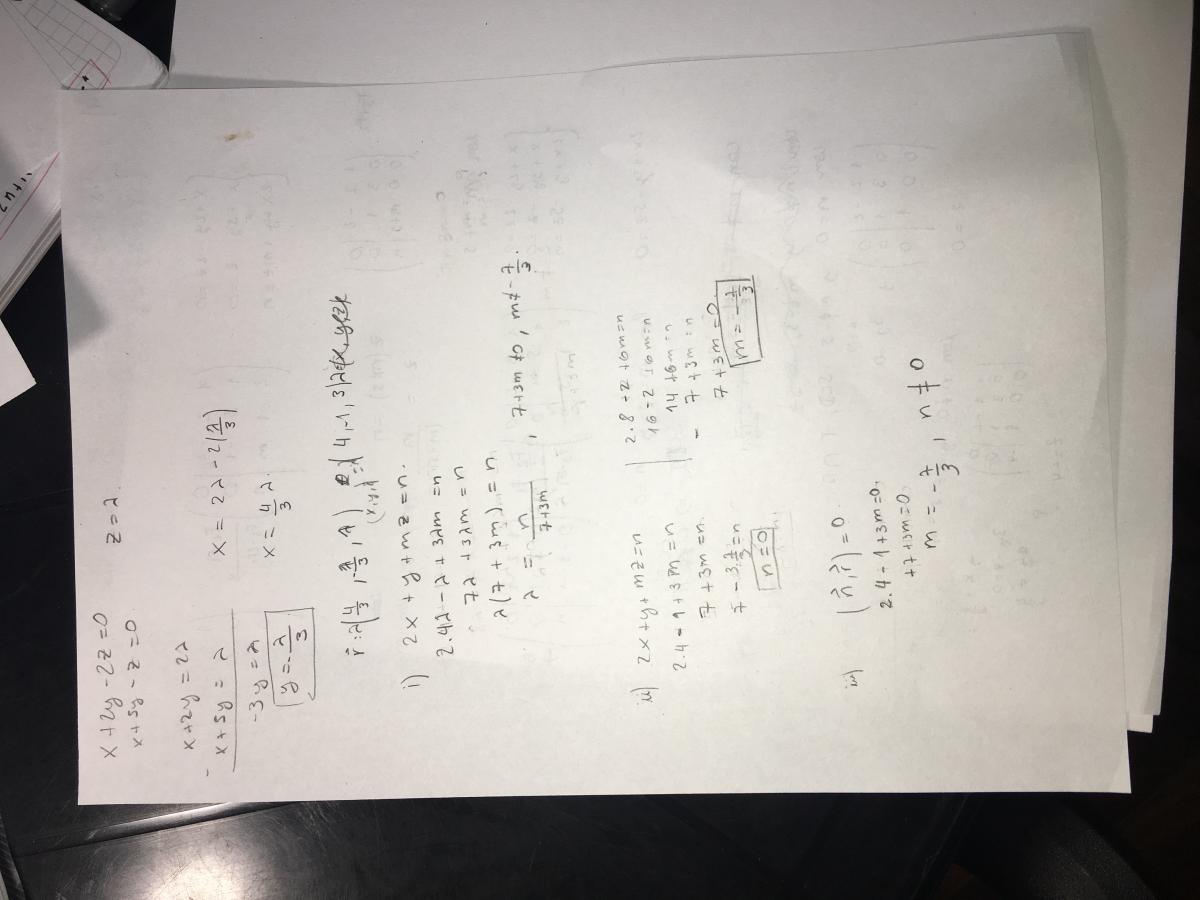 x+2y-2z=0
x+5y-z=0
z=λ
x+2y=2λ
- x+5y=λ
-3y=λ
y=-λ/3
x=2λ-2(λ/3)
x=4/3 λ.
r:λ(4/3,-1/3,λ)
(x,y,z)=λ(4,-1,3)
i) 2x+y+mz=n.
2.4λ-λ+3λm=n
7λ+3λm=n
λ(7+3m)=n
λ=n/7+3m, 7+3m≠0, m≠-7/3.
ii) 2x+y+mz=n
2.4-1+3m=n
7+3m=n.
7-3.7/3=n
n=0
2.8-2+6m=n
16-2+6m=n
14+6m=n
- 7+3m=n
7+3m=0
m=-7/3
iii) (n,r)=0
2.4-1+3m=0
+7+3m=0
m=-7/3, n≠0